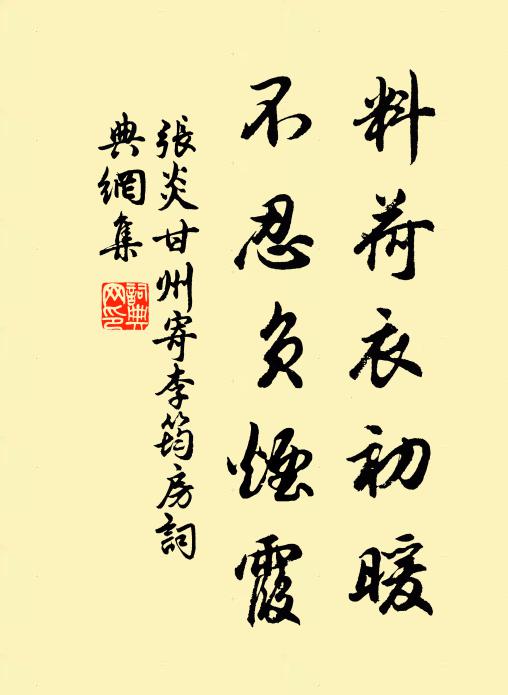 料荷衣初暖
不忍負煙霞
張炎甘州寄李筠房詞
典網集
詞典網印